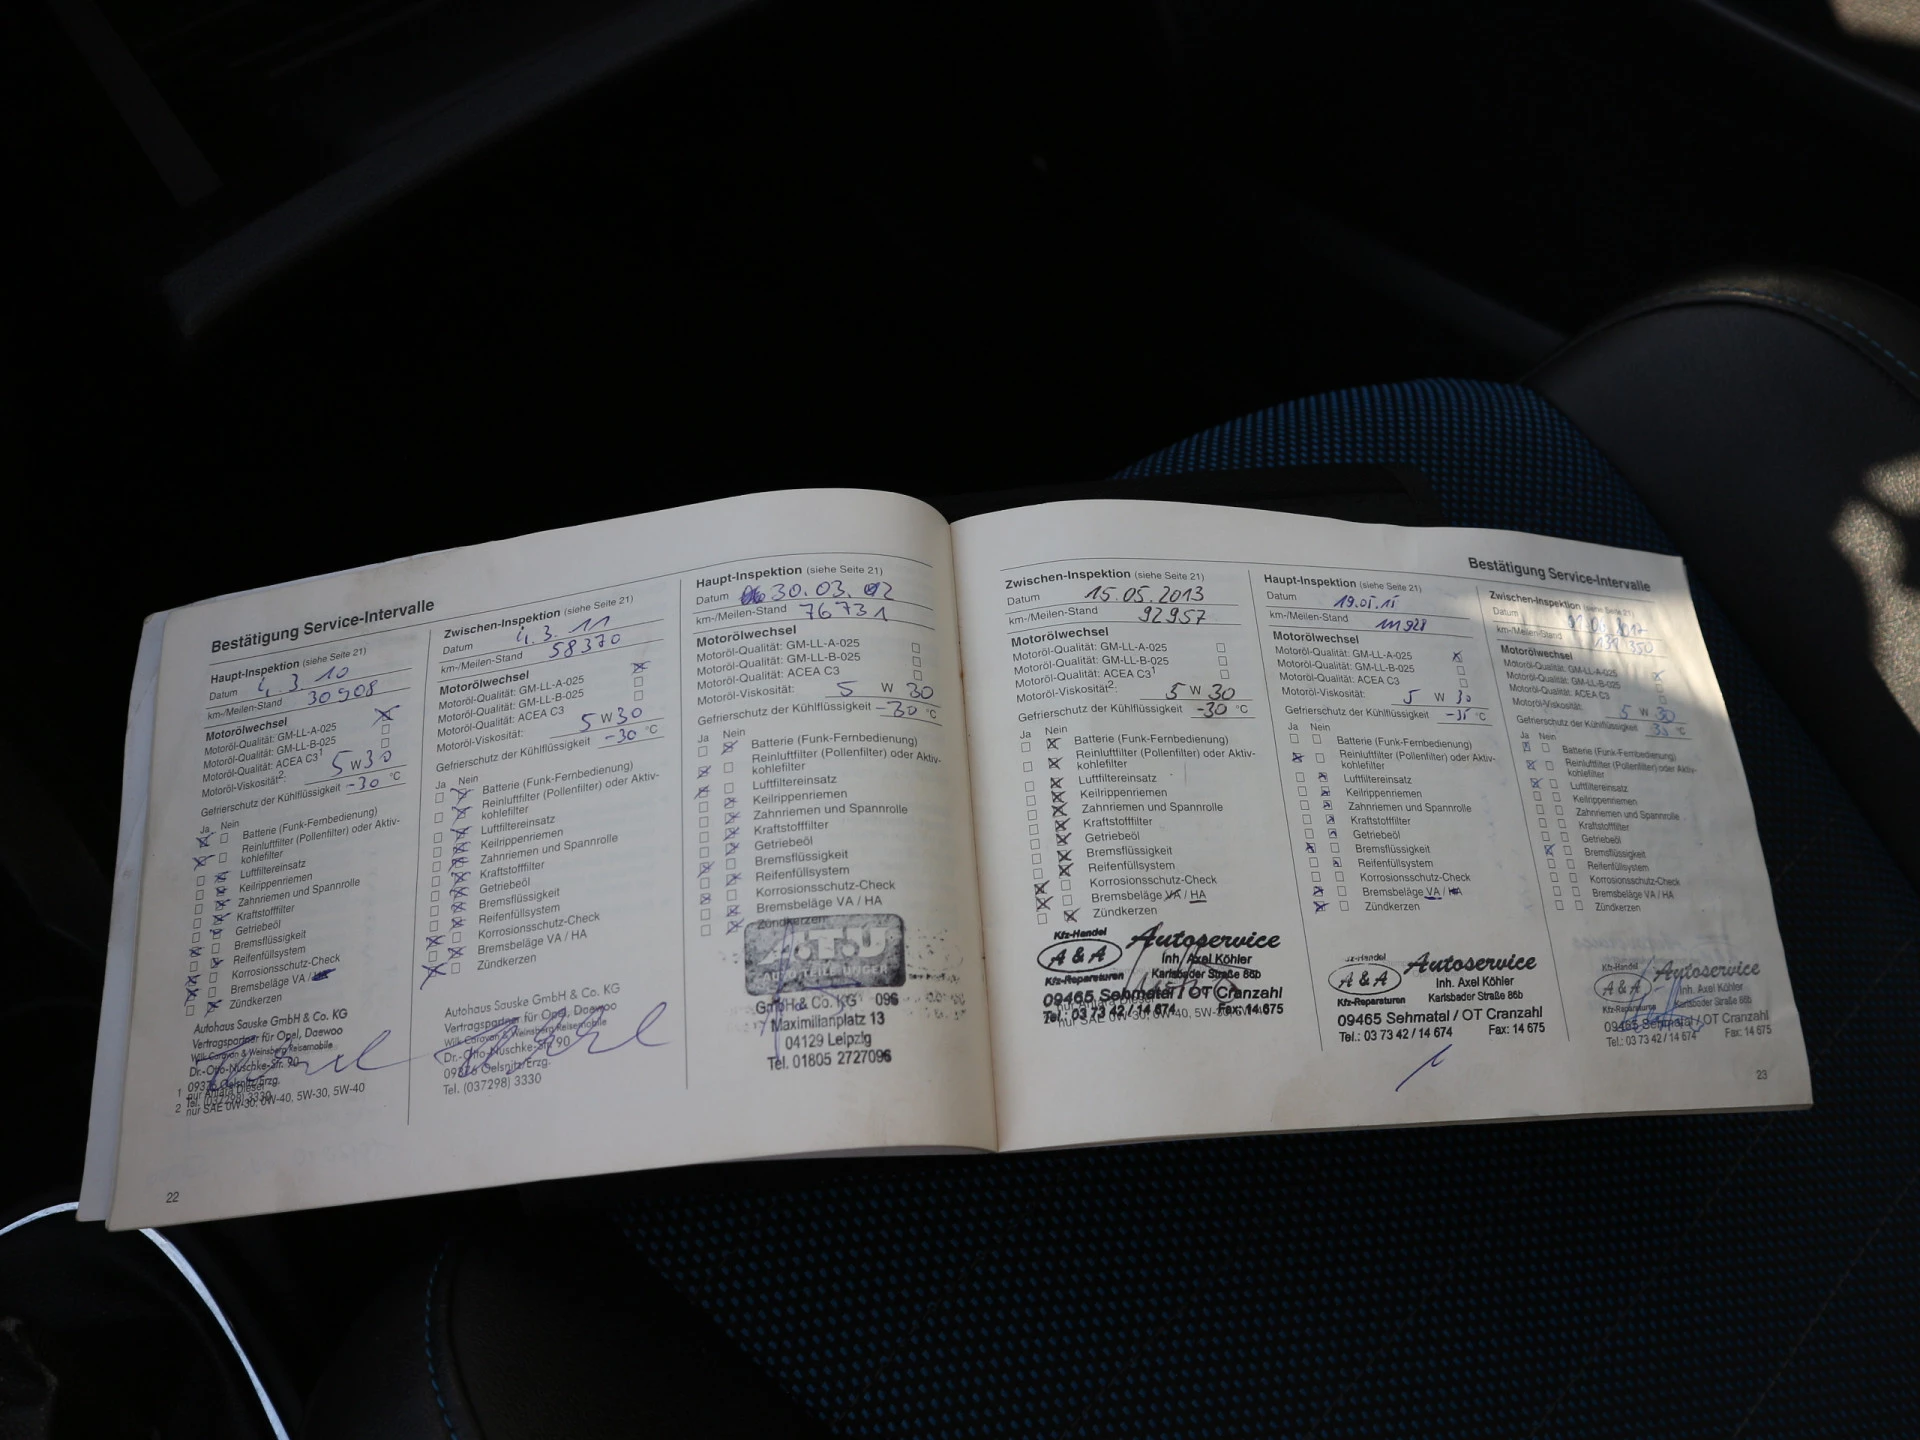 Bestätigung Service-Intervalle
Haupt-Inspektion (siehe Seite 21)
Datum 4. 3. 10
km-/Meilen-Stand 30908
Motorölwechsel
Motoröl-Qualität: GM-LL-A-025
Motoröl-Qualität: GM-LL-B-025
Motoröl-Qualität: ACEA C3¹
Motoröl-Viskosität²: 5 W 30
Gefrierschutz der Kühlflüssigkeit -30 °C
Ja Nein
Batterie (Funk-Fernbedienung)
Reinluftfilter (Pollenfilter) oder Aktiv-
kohlefilter
Luftfiltereinsatz
Keilrippenriemen
Zahnriemen und Spannrolle
Kraftstofffilter
Getriebeöl
Bremsflüssigkeit
Reifenfüllsystem
Korrosionsschutz-Check
Bremsbeläge VA /
Zündkerzen
Autohaus Sauske GmbH & Co. KG
Vertragspartner für Opel, Daewoo
Wilk Caravan & Weinsberg Reisemobile
Dr.-Otto-Nuschke-Str. 90
09376 Oelsnitz/Erzg.
Tel. (037298) 3330
1 nur Antara Diesel
2 nur SAE 0W-30, 0W-40, 5W-30, 5W-40
22
Zwischen-Inspektion (siehe Seite 21)
Datum 4. 3. 11
km-/Meilen-Stand 58370
Motorölwechsel
Motoröl-Qualität: GM-LL-A-025
Motoröl-Qualität: GM-LL-B-025
Motoröl-Qualität: ACEA C3
Motoröl-Viskosität: 5 W 30
Gefrierschutz der Kühlflüssigkeit -30 °C
Ja Nein
Batterie (Funk-Fernbedienung)
Reinluftfilter (Pollenfilter) oder Aktiv-
kohlefilter
Luftfiltereinsatz
Keilrippenriemen
Zahnriemen und Spannrolle
Kraftstofffilter
Getriebeöl
Bremsflüssigkeit
Reifenfüllsystem
Korrosionsschutz-Check
Bremsbeläge VA / HA
Zündkerzen
Autohaus Sauske GmbH & Co. KG
Vertragspartner für Opel, Daewoo
Wilk Caravan & Weinsberg Reisemobile
Dr.-Otto-Nuschke-Str. 90
09376 Oelsnitz/Erzg.
Tel. (037298) 3330
Haupt-Inspektion (siehe Seite 21)
Datum 30.03.12
km-/Meilen-Stand 76731
Motorölwechsel
Motoröl-Qualität: GM-LL-A-025
Motoröl-Qualität: GM-LL-B-025
Motoröl-Qualität: ACEA C3
Motoröl-Viskosität: 5 W 30
Gefrierschutz der Kühlflüssigkeit -30 °C
Ja Nein
Batterie (Funk-Fernbedienung)
Reinluftfilter (Pollenfilter) oder Aktiv-
kohlefilter
Luftfiltereinsatz
Keilrippenriemen
Zahnriemen und Spannrolle
Kraftstofffilter
Getriebeöl
Bremsflüssigkeit
Reifenfüllsystem
Korrosionsschutz-Check
Bremsbeläge VA / HA
Zündkerzen
A.T.U
AUTO TEILE UNGER
GmbH & Co. KG 096
Maximilianplatz 13
04129 Leipzig
Tel. 01805 2727096
Bestätigung Service-Intervalle
Zwischen-Inspektion (siehe Seite 21)
Datum 15.05.2013
km-/Meilen-Stand 92957
Motorölwechsel
Motoröl-Qualität: GM-LL-A-025
Motoröl-Qualität: GM-LL-B-025
Motoröl-Qualität: ACEA C3¹
Motoröl-Viskosität²: 5 W 30
Gefrierschutz der Kühlflüssigkeit -30 °C
Ja Nein
Batterie (Funk-Fernbedienung)
Reinluftfilter (Pollenfilter) oder Aktiv-
kohlefilter
Luftfiltereinsatz
Keilrippenriemen
Zahnriemen und Spannrolle
Kraftstofffilter
Getriebeöl
Bremsflüssigkeit
Reifenfüllsystem
Korrosionsschutz-Check
Bremsbeläge VA / HA
Zündkerzen
Kfz-Handel
A & A Autoservice
Kfz-Reparaturen
Inh. Axel Köhler
Karlsbader Straße 86b
09465 Sehmatal / OT Cranzahl
Tel.: 03 73 42 / 14 674 Fax: 14 675
nur Antara Diesel
nur SAE 0W-30, 0W-40, 5W-30, 5W-40
Haupt-Inspektion (siehe Seite 21)
Datum 19.05.15
km-/Meilen-Stand 111928
Motorölwechsel
Motoröl-Qualität: GM-LL-A-025
Motoröl-Qualität: GM-LL-B-025
Motoröl-Qualität: ACEA C3
Motoröl-Viskosität: 5 W 30
Gefrierschutz der Kühlflüssigkeit -35 °C
Ja Nein
Batterie (Funk-Fernbedienung)
Reinluftfilter (Pollenfilter) oder Aktiv-
kohlefilter
Luftfiltereinsatz
Keilrippenriemen
Zahnriemen und Spannrolle
Kraftstofffilter
Getriebeöl
Bremsflüssigkeit
Reifenfüllsystem
Korrosionsschutz-Check
Bremsbeläge VA / HA
Zündkerzen
A & A Autoservice
Kfz-Reparaturen
Inh. Axel Köhler
Karlsbader Straße 86b
09465 Sehmatal / OT Cranzahl
Tel.: 03 73 42 / 14 674 Fax: 14 675
Zwischen-Inspektion (siehe Seite 21)
Datum
km-/Meilen-Stand
Motorölwechsel
Motoröl-Qualität: GM-LL-A-025
Motoröl-Qualität: GM-LL-B-025
Motoröl-Qualität: ACEA C3
Motoröl-Viskosität: 5 W 30
Gefrierschutz der Kühlflüssigkeit °C
Ja Nein
Batterie (Funk-Fernbedienung)
Reinluftfilter (Pollenfilter) oder Aktiv-
kohlefilter
Luftfiltereinsatz
Keilrippenriemen
Zahnriemen und Spannrolle
Kraftstofffilter
Getriebeöl
Bremsflüssigkeit
Reifenfüllsystem
Korrosionsschutz-Check
Bremsbeläge VA / HA
Zündkerzen
Kfz-Handel
A & A Autoservice
Kfz-Reparaturen
Inh. Axel Köhler
Karlsbader Straße 86b
09465 Sehmatal / OT Cranzahl
Tel.: 03 73 42 / 14 674 Fax: 14 675
23